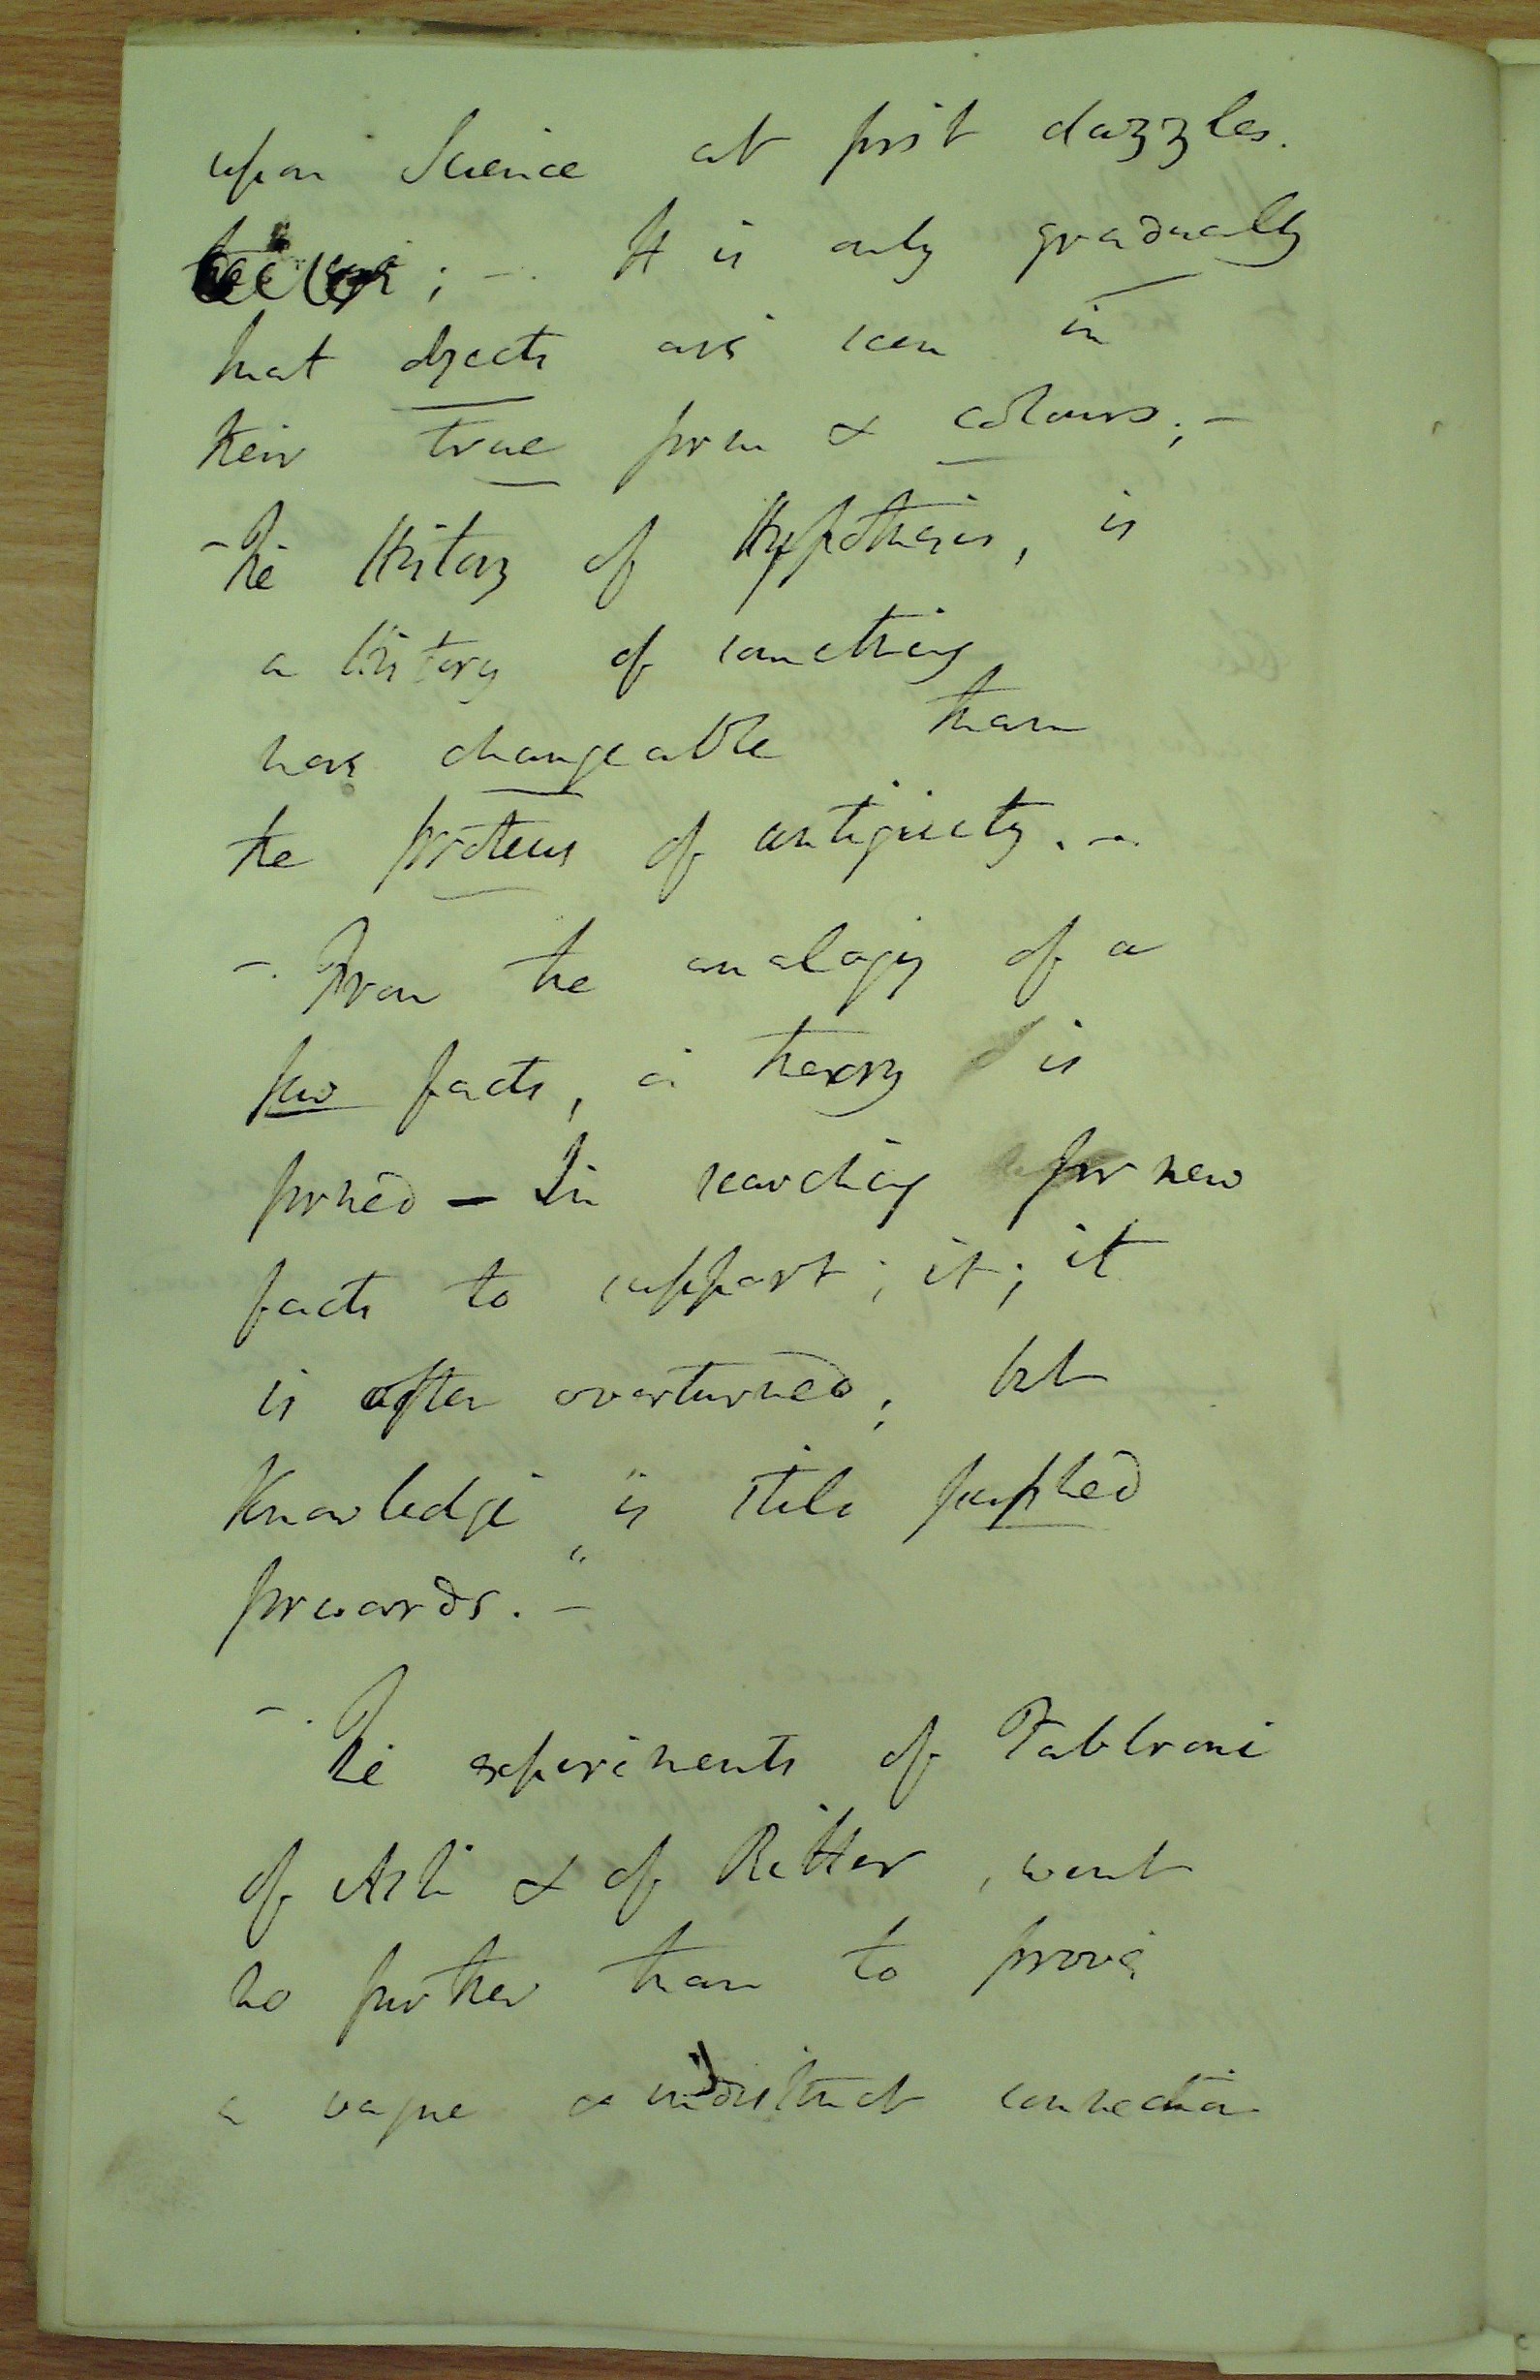 upon Science at first dazzles.
the eye; - It is only gradually
that objects are seen in
their true form & colours; -
- The History of Hypothesis, is
a history of something
more changeable than
the proteus of antiquity. -
-. From the analogy of a
few facts, a theory is
formed - In searching for new
facts to support; it; it
is often overturned; but
Knowledge "is still pushed
forwards." -
-. The experiments of Fabbroni
of Ash & of Ritter, went
no further than to prove
a vague & indistinct connection